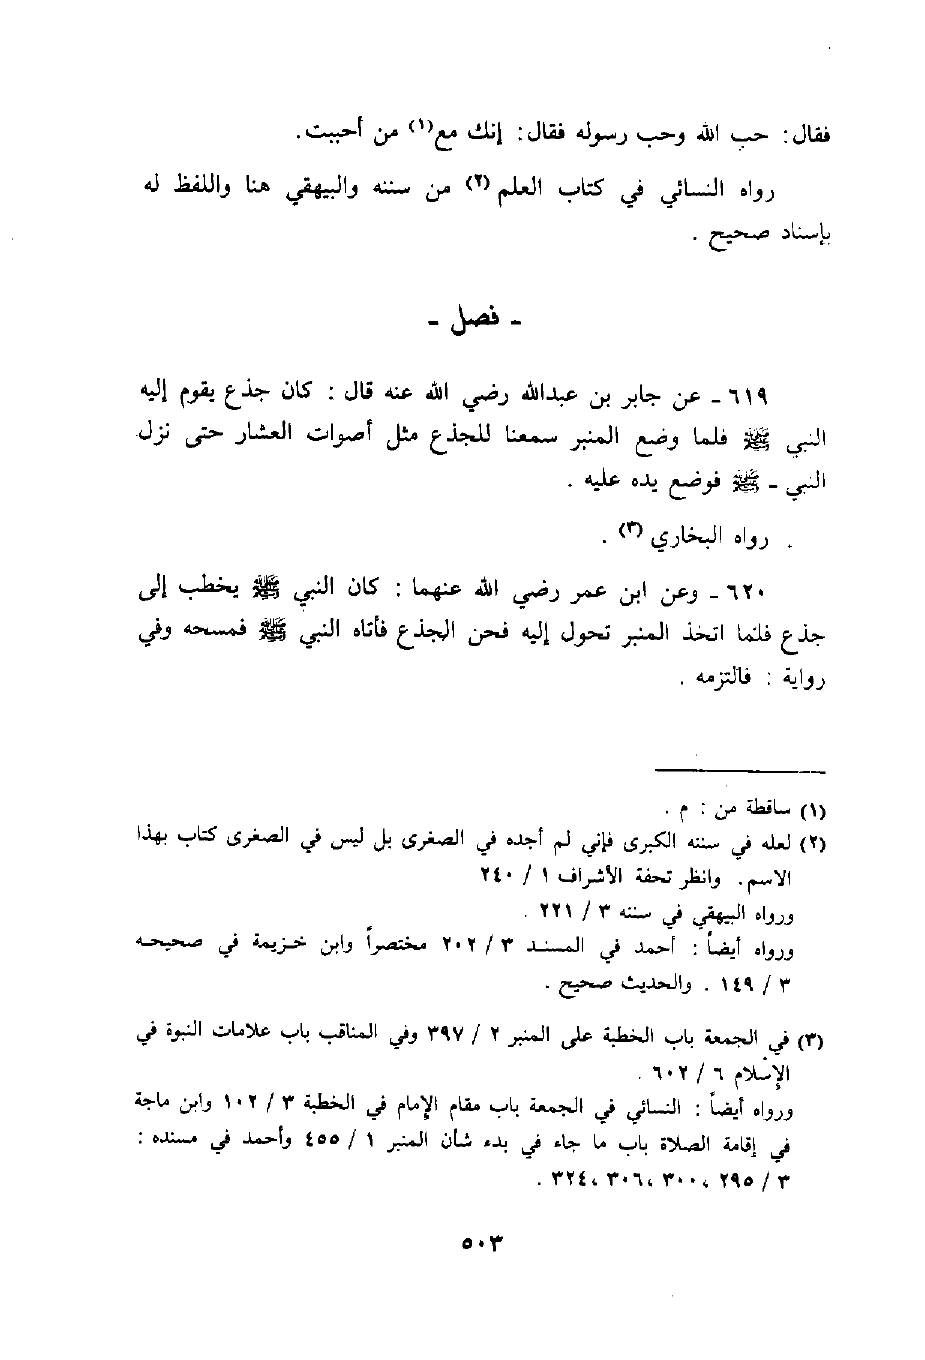 فقال: حب الله وحب رسوله فقال: إنك مع(١) من أحببت.
رواه النسائي في كتاب العلم(٢) من سننه والبيهقي هنا واللفظ له
بإسناد صحيح .
ـ فصل ـ
٦١٩ ـ عن جابر بن عبدالله رضي الله عنه قال : كان جذع يقوم إليه
النبي ﷺ فلما وضع المنبر سمعنا للجذع مثل أصوات العشار حتى نزل
النبي ـ ﷺ فوضع يده عليه .
. رواه البخاري(٣) .
٦٢٠ ـ وعن ابن عمر رضي الله عنهما : كان النبي ﷺ يخطب إلى
جذع فلما اتخذ المنبر تحول إليه فحن الجذع فأتاه النبي ﷺ فمسحه وفي
رواية : فالتزمه .
(١) ساقطة من : م .
(٢) لعله في سننه الكبرى فإني لم أجده في الصغرى بل ليس في الصغرى كتاب بهذا
الاسم. وانظر تحفة الأشراف ١ / ٢٤٠
ورواه البيهقي في سننه ٣ / ٢٢١ .
ورواه أيضاً : أحمد في المسند ٣ / ٢٠٢ مختصراً وابن خزيمة في صحيحه
٣ / ١٤٩ . والحديث صحيح .
(٣) في الجمعة باب الخطبة على المنبر ٢ / ٣٩٧ وفي المناقب باب علامات النبوة في
الإسلام ٦ / ٦٠٢ .
ورواه أيضاً : النسائي في الجمعة باب مقام الإمام في الخطبة ٣ / ١٠٢ وابن ماجة
في إقامة الصلاة باب ما جاء في بدء شأن المنبر ١ / ٤٥٥ وأحمد في مسنده :
٣ / ٢٩٥ ،٣٠٠ ،٣٠٦ ،٣٢٤ .
٥٠٣